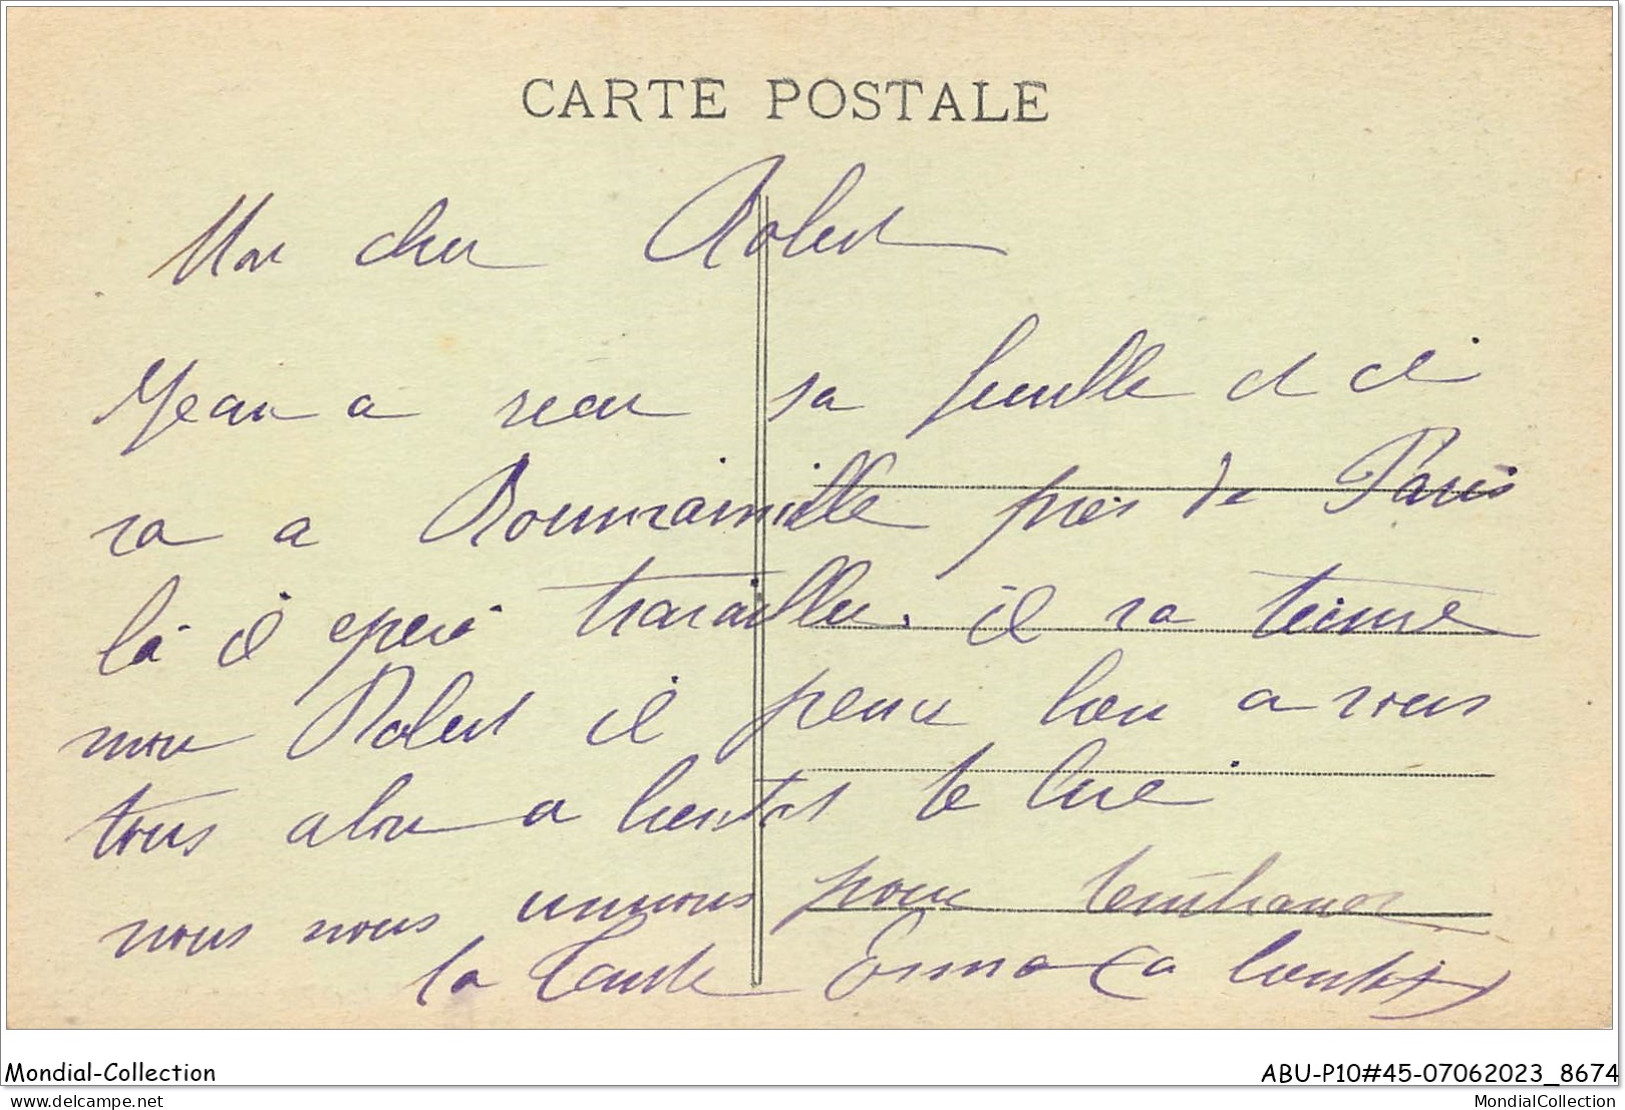 CARTE POSTALE
Mon cher Robert
Jean a recu sa feuille et ci
va a Romainville près de Paris
là il travailler. il va
mon Robert il bien a vous
tous alor a bientot te lire
nous nous unnons pour tembrasser
la Tante Emma (a bientot)
Mondial-Collection
ABU-P10#45-07062023_8674
www.delcampe.net
MondialCollection